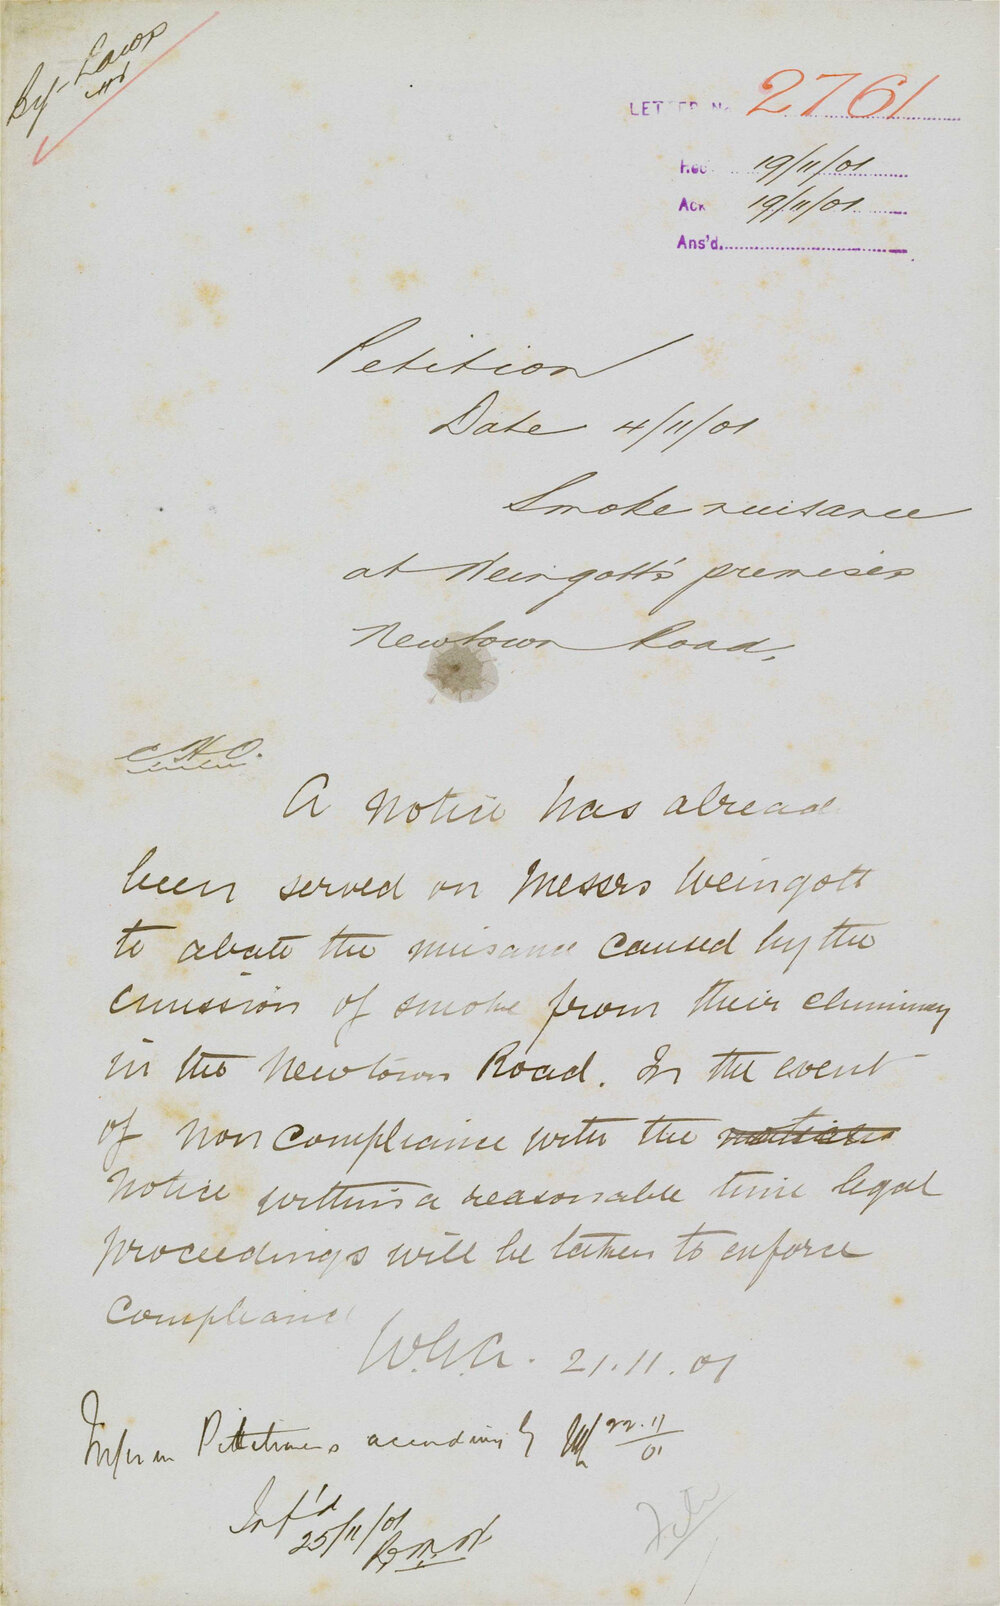 By-Laws
LETTER No 2761
Rec 19/11/01
Ack 19/11/01
Ans'd.
Petition
Date 4/11/01
Smoke nuisance
at Weingott's premises
Newtown Road,
C H O.
A notice has alread
been served on Messrs Weingott
to abate the nuisance caused by the
emission of smoke from their chimney
in the Newtown Road. In the event
of non compliance with the notice
Notice within a reasonable time legal
proceedings will be taken to enforce
compliance
W.G.A. 21.11.01
Inform Petitioners accordingly 22.11/01
Inf'd
25/11/01
File